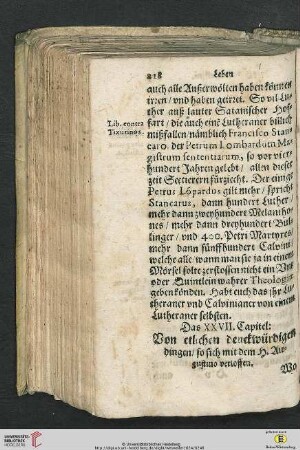 818 Leben
auch alle Außerwölten haben können
irren / vnd haben geirret. So vil Lu-
ther auß lauter Satanischer Hof-
fart / die auch eine Lutheraner billich
Lib. contra
mißfallen nämblich Francisco Stan-
caro, der Petrum Lombardum Ma-
gistrum sententiarum, so vor vier-
hundert Jahren gelebt / allen diser
zeit Sectierern fürzicht. Der einige
Petrus Lõpardus gilt mehr / spricht
Stancarus, dann hundert Luther /
mehr dann zweyhundert Melanthо-
nes / mehr dann dreyhundert Bul-
linger / vnd 400. Petri Martyres /
mehr dann fünffhundert Calvini
welche alle / wann man sie ja in einem
Mörsel solte zerstossen nicht ein Vntz
oder Quintlein wahrer Theologiæ
geben könden. Habt euch das ihr Lu-
theraner vnd Calvinianer von einem
Lutheraner selbsten.
Das XXVII. Capitel:
Von etlichen denckwürdigen
dingen, so sich mit dem H. Au-
gustino verloffen.
Wo